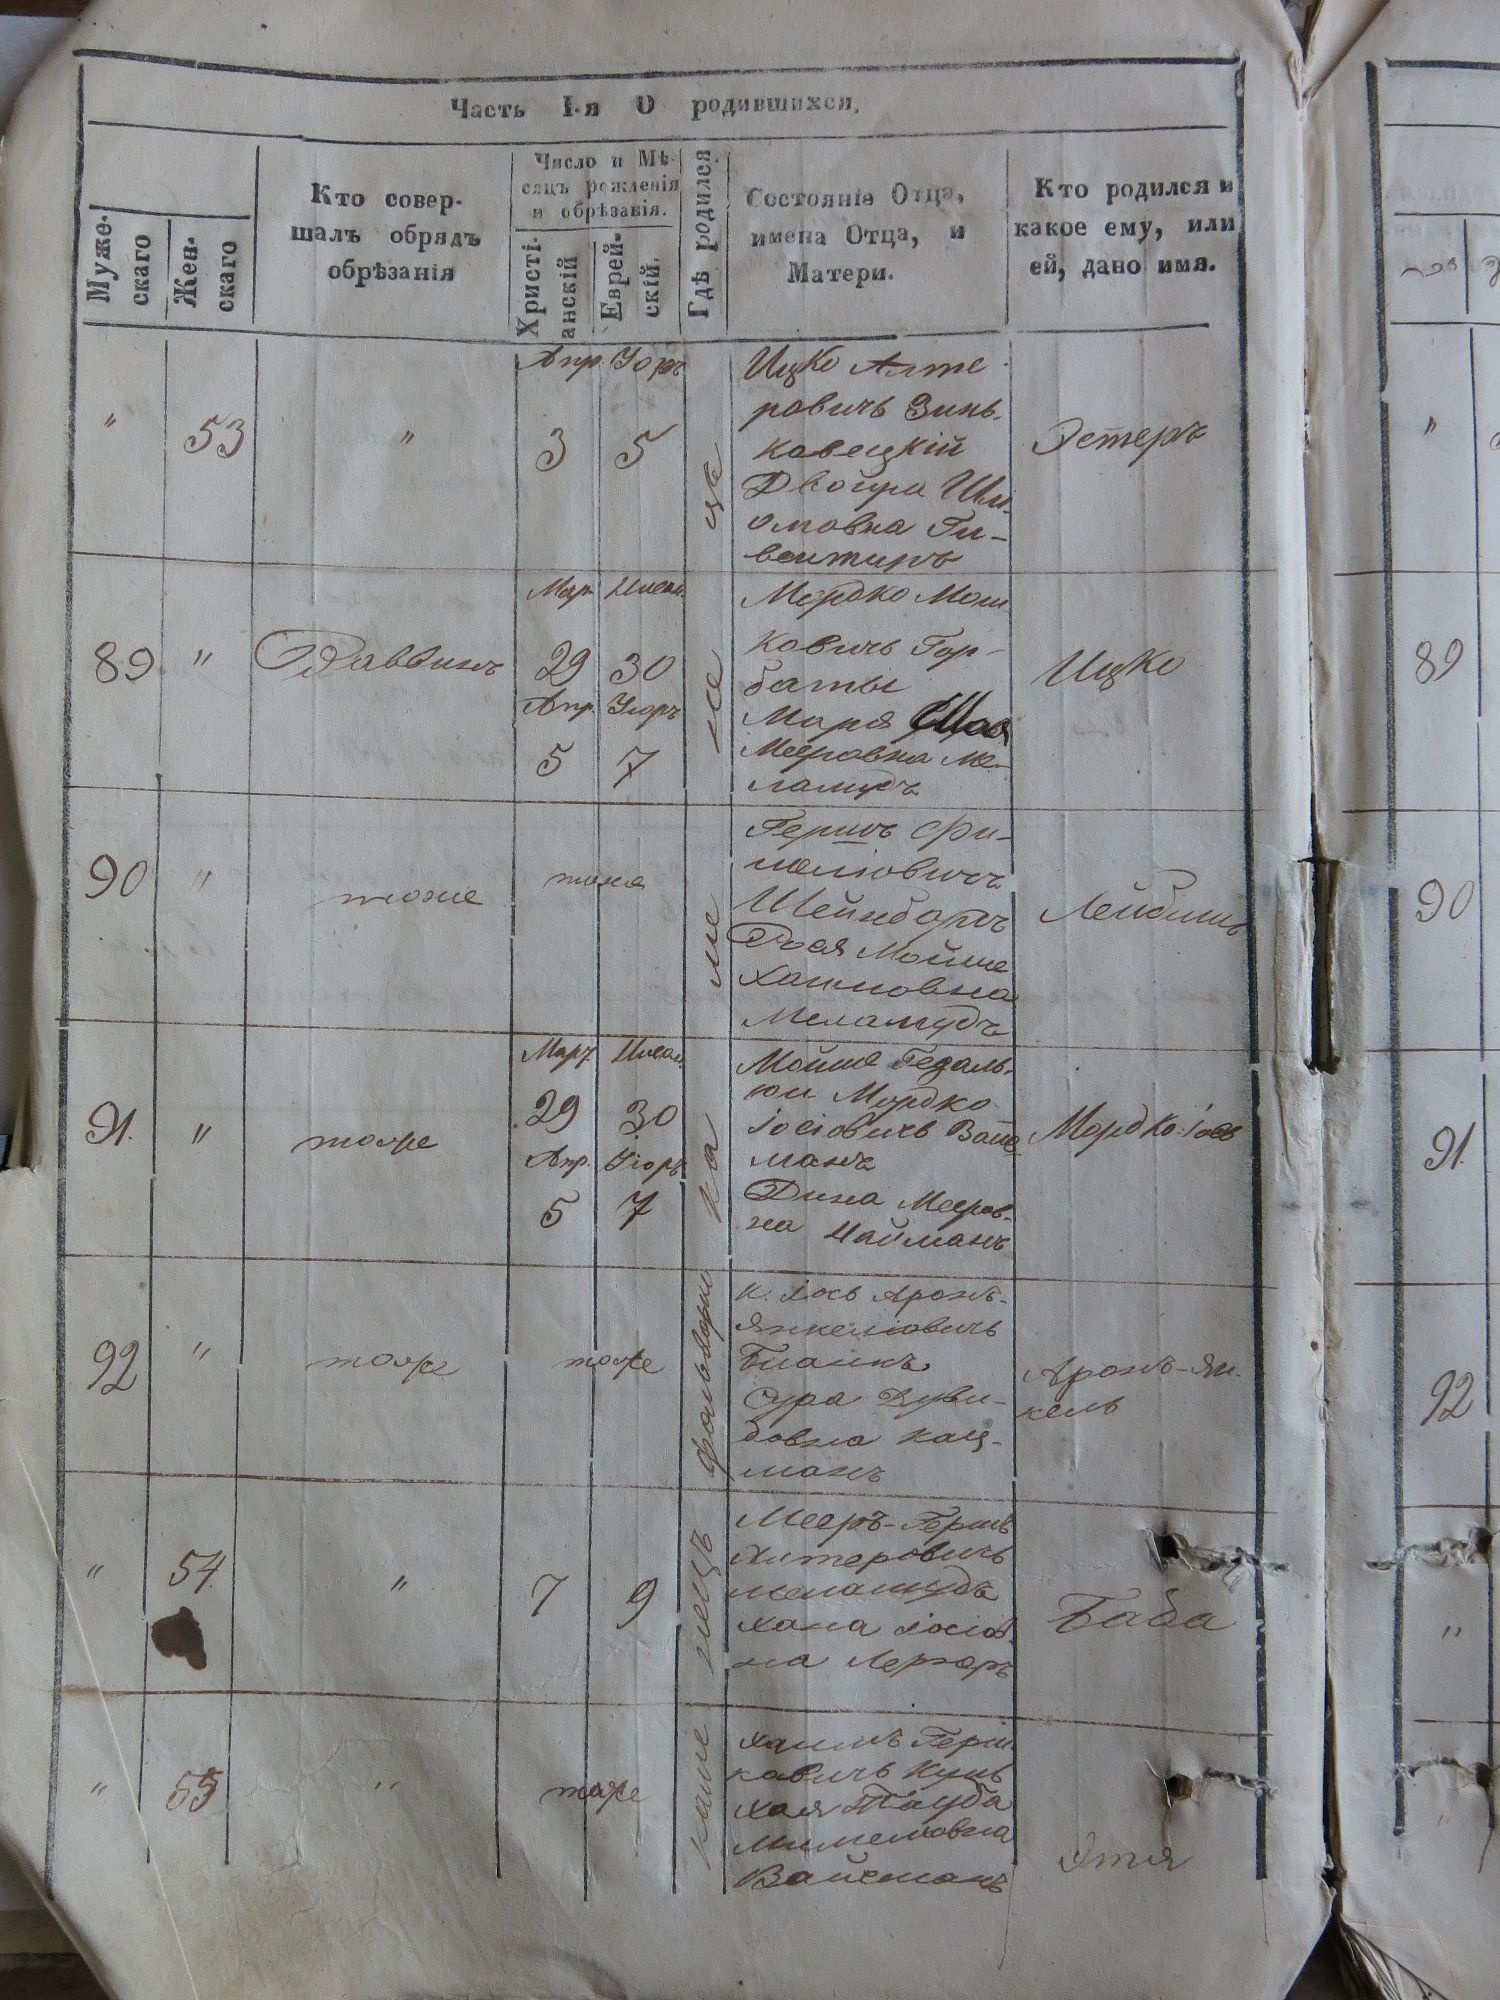 Часть I-я О родившихся.
Муже-
скаго
Жен-
скаго
Кто совер-
шалъ обрядъ
обрѣзанія
Число и Мѣ-
сяцъ рожденія
и обрѣзанія.
Христі-
анскій
Еврей-
скій.
Гдѣ родился.
Состояніе Отца,
имена Отца, и
Матери.
Кто родился и
какое ему, или
ей, дано имя.
Апр
"
53
"
3
5
Ицко Алте
ровичъ Зинь-
ковецкій
Двойра Шл-
омовна
Эстеръ
Мар.
89
"
Раввинъ
29
30
Апр.
5
7
Мордко Мош
ковичъ Гор-
баты
Маря
Мееровна Ме-
ламудъ
Ицко
90
"
тоже
тоже
Гершъ
Шейнбортъ
Рося Мойше
Хаимовна
Меламудъ
Лейбишъ
Мар.
91.
"
тоже
29
30
Апр.
5
7
Мойше Гедаль-
Мордко
Іосіовичъ Вайс
манъ
Дина Мееров-
на Найманъ
Мордко-Іось
92
"
тоже
тоже
Іось Аронъ-
Янкеліовичъ
Бланкъ
Сура Дуви-
довна Кац-
манъ
Аронъ-Ян-
кель
"
54
"
7
9
Мееръ-Гершъ
Алтеровичъ
Меламудъ
Хана Іосіов-
на Лернеръ
Баба
"
55
"
тоже
Хаимъ Герш
ковичъ
Хая Тауба
Вайсманъ
Этя
89
90
91.
92